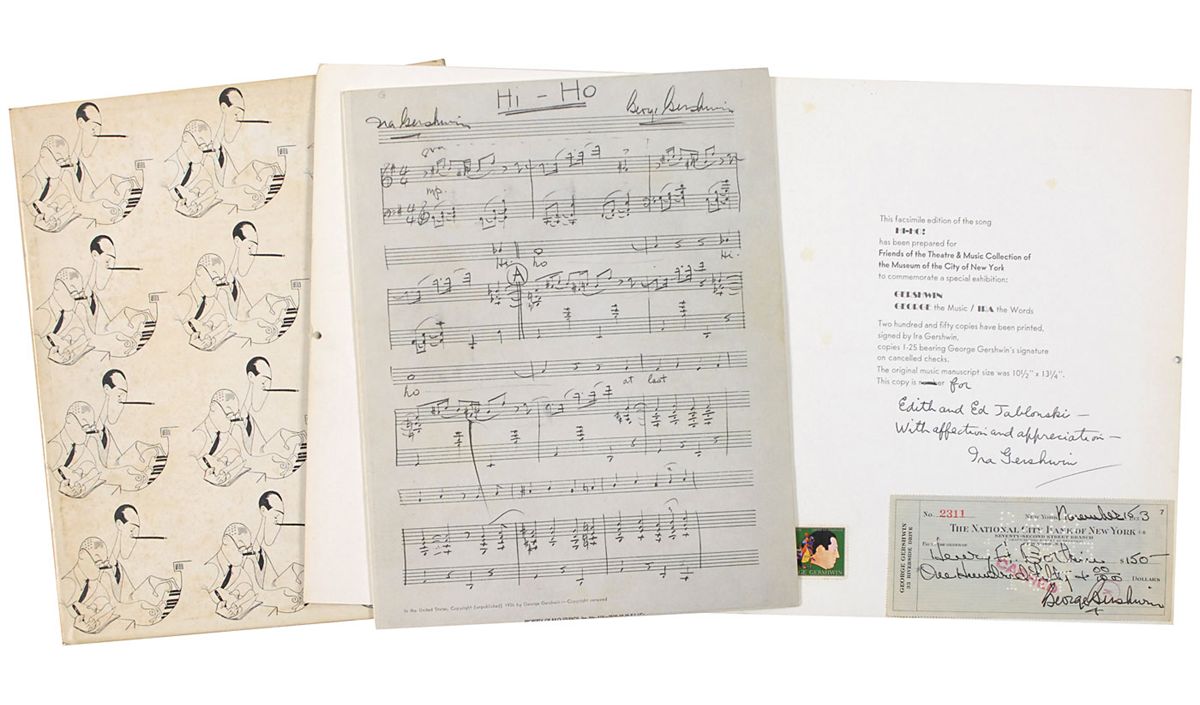 Hi - Ho
Ira Gershwin
George Gershwin
8va
mp
Hi - ho
Hi -
ho
at last
In the United States, Copyright (unpublished) 1936 by George Gershwin—Copyright renewed
This facsimile edition of the song
HI-HO!
has been prepared for
Friends of the Theatre & Music Collection of
the Museum of the City of New York
to commemorate a special exhibition:
GERSHWIN
GEORGE the Music / IRA the Words
Two hundred and fifty copies have been printed,
signed by Ira Gershwin,
copies 1-25 bearing George Gershwin's signature
on cancelled checks.
The original music manuscript size was 10½" x 13¼".
This copy is number for
Edith and Ed Jablonski —
With affection and appreciation —
Ira Gershwin
GE GERSHWIN
GEORGE GERSHWIN
33 RIVERSIDE DRIVE
No. 2311
NEW YORK November 15
THE NATIONAL CITY BANK OF NEW YORK
SEVENTY-SECOND STREET BRANCH
Henry
$150
One Hundred Fifty
DOLLARS
George Gershwin